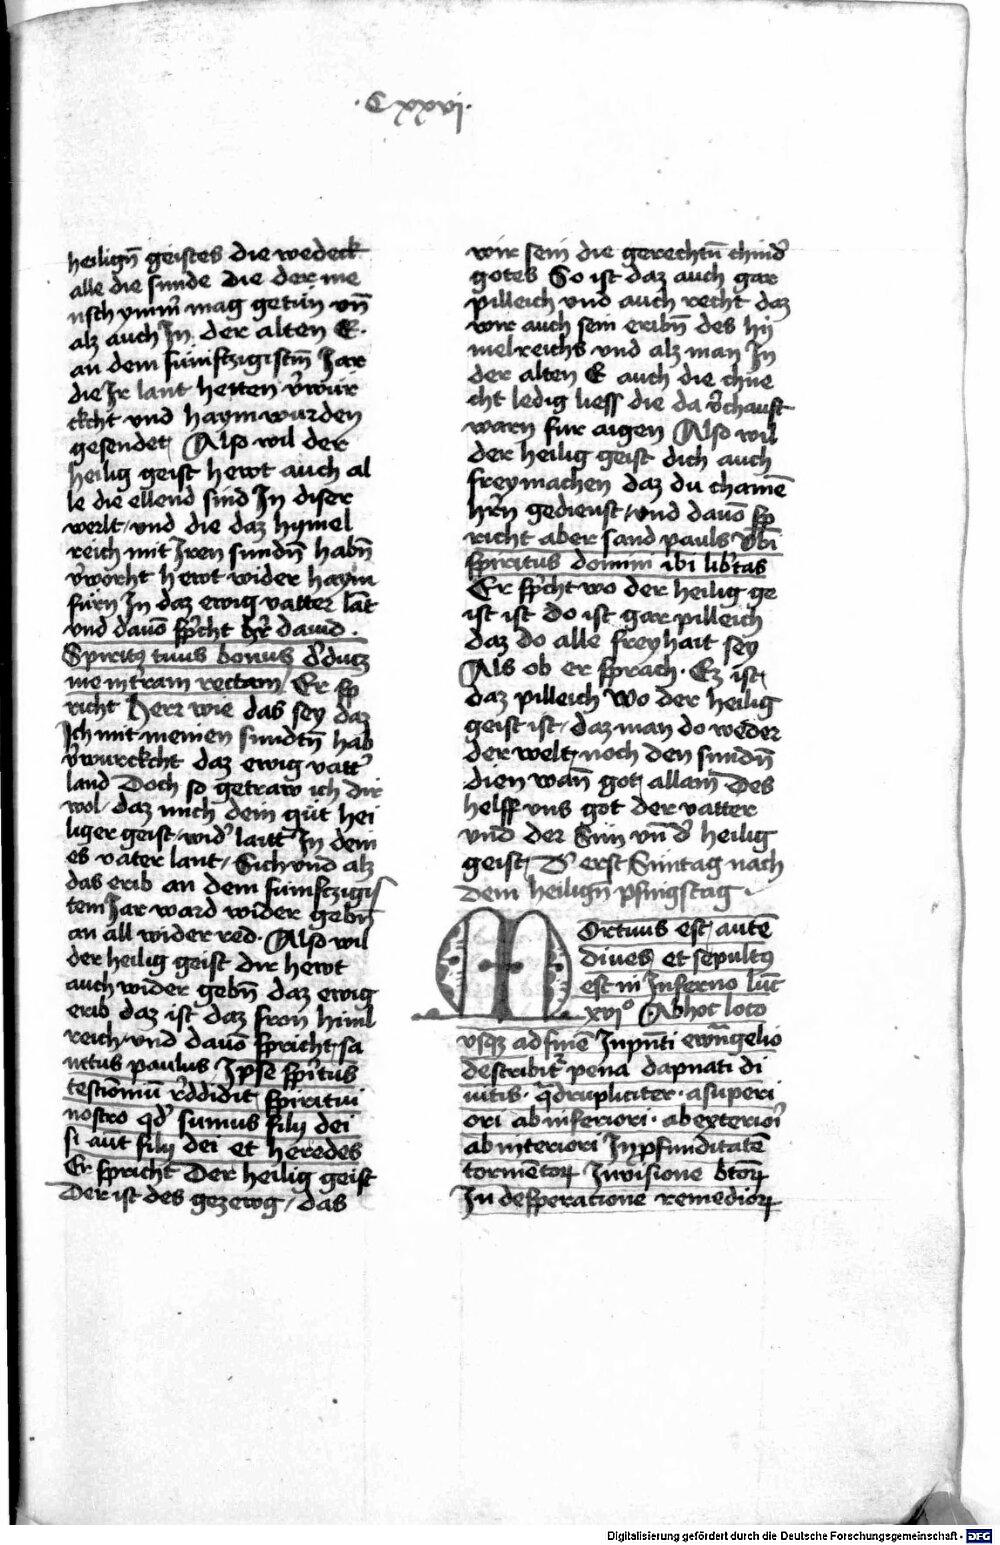 .Cxxvi.
heilign̄ geistes die wedeck
alle die sunde die der me
nsch ym̄m̉ mag getůn vn̄
alz auch In der alten E.
an dem fünfftzigistn̄ Jar
die Ir lant hetten v̉wür
ckcht vnd haym wurden
gesendet / Also wil der
heilig geist hewt auch al
le die ellend sind In diser
werlt / vnd die daz hymel
reich mit Iren sundn̄ habn̄
v̉worht hewt wider haym
fürn In daz ewig vatter lāt
vnd dauō sp̉cht h̉r dauid .
Spiritꝰ tuus bonus d̉duc3
me in t̉ram rectam / Er sp
richt Herr wie das sey daz
Ich mit meinen sundn̄ hab
v̉wurckcht daz ewig vatt̉
land Doch so getraw ich dir
wol / daz mich dein güt hei
liger geist / wid̉ laitt In dein
es vater lant / Sich vnd alz
das erib an dem fünfftzigis
tem Jar ward wider gebn̄
an all wider red . Also wil
der heilig geist dir hewt
auch wider gebn̄ daz ewig
erib daz ist daz fron himl
reich / vnd dauō spricht sa
nctus paulus Ip̄se sp̉itus
testiomiū r̉ddidit spiritui
nostro qd̉ sumus filij dei
si aūt filij dei et heredes
Er spricht Der heilig geist
Der ist des gezewg / das
wir sein die gerechtn̄ chind̉
gotes So ist daz auch gar
pilleich vnd auch recht daz
wir auch sein eribn̄ des hy
melreichs vnd alz man In
der alten E auch die chne
cht ledig liess die da v̉chaufft
warn fur aigen Also wil
der heilig geist dich auch
frey machen daz du chainē
h̉rn gedienst / vnd dauō sp
richt aber sand pauls Vbi
spiritus domini ibi lib̉tas
Er sp̉cht wo der heilig ge
ist ist do ist gar pilleich
daz do alle freyhait sey
Als ob er sprach . Ez ist
daz pilleich Wo der heilig
geist ist / daz man do weder
der welt noch den sundn̄
dien wan̄ got allain̄ Des
helff vns got der vatter
vnd der Sün vn̄ d̉ heilig
geist / D̉ erst Suntag nach
dem heilign̄ pfingstag .
Mortuus est autē
diues et sepultꝰ
est in Inferno luc̄
xvi° Ab hoc loco
vsqꝫ ad finē In pn̄ti ewn̄gelio
describit̉ pena dapnati di
uitis . qͣdrupliciter . a superi
ori ab inferiori . ab exteriori
ab interiori In pfunditatē
tormētoꝝ In visione b̄toꝝ
In desperacione remedioꝝ
Digitalisierung gefördert durch die Deutsche Forschungsgemeinschaft - DFG